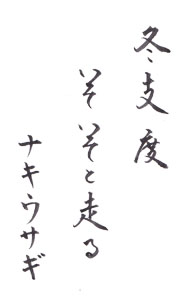 冬支度
いそいそと走る
ナキウサギ